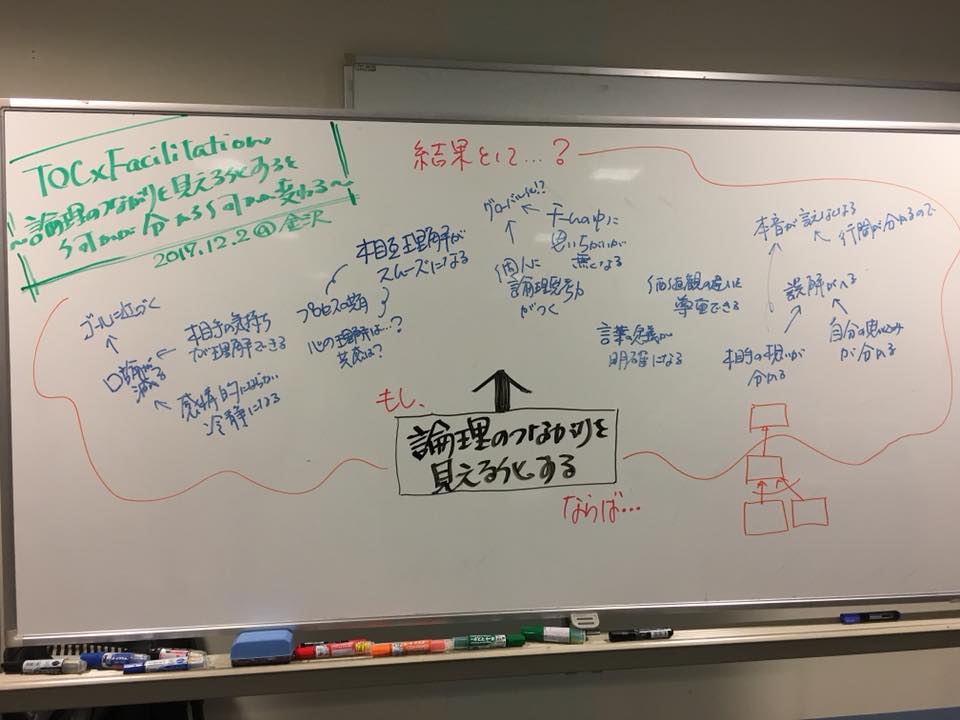 TOC×Facilitation
〜論理のつながりを見える化すると
何が分かる?何が変わる〜
2017.12.2@金沢
結果として…?
ゴールに近づく
口論が
減る
相手の気持ち
が理解できる
感情的にならない
冷静になる
相互理解が
スムーズになる
プロセスの共有
心の理解は…?
共感は?
グローバル化!?
個人に
論理思考力
がつく
チームの中に
思いちがいが
無くなる
価値観の違いに
尊重できる
言葉の定義が
明確になる
本音が言えるようになる
行間が分かるので
誤解がへる
相手の想いが
分かる
自分の思い込み
が分かる
もし、
論理のつながりを
見える化する
ならば…